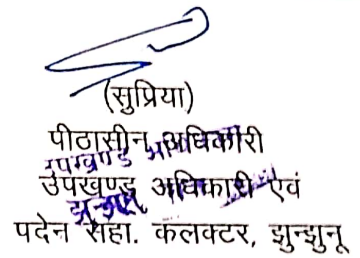 (सुप्रिया)
पीठासीन अधिकारी
उपखण्ड अधिकारी एवं
पदेन सहा. कलक्टर, झुन्झुनू